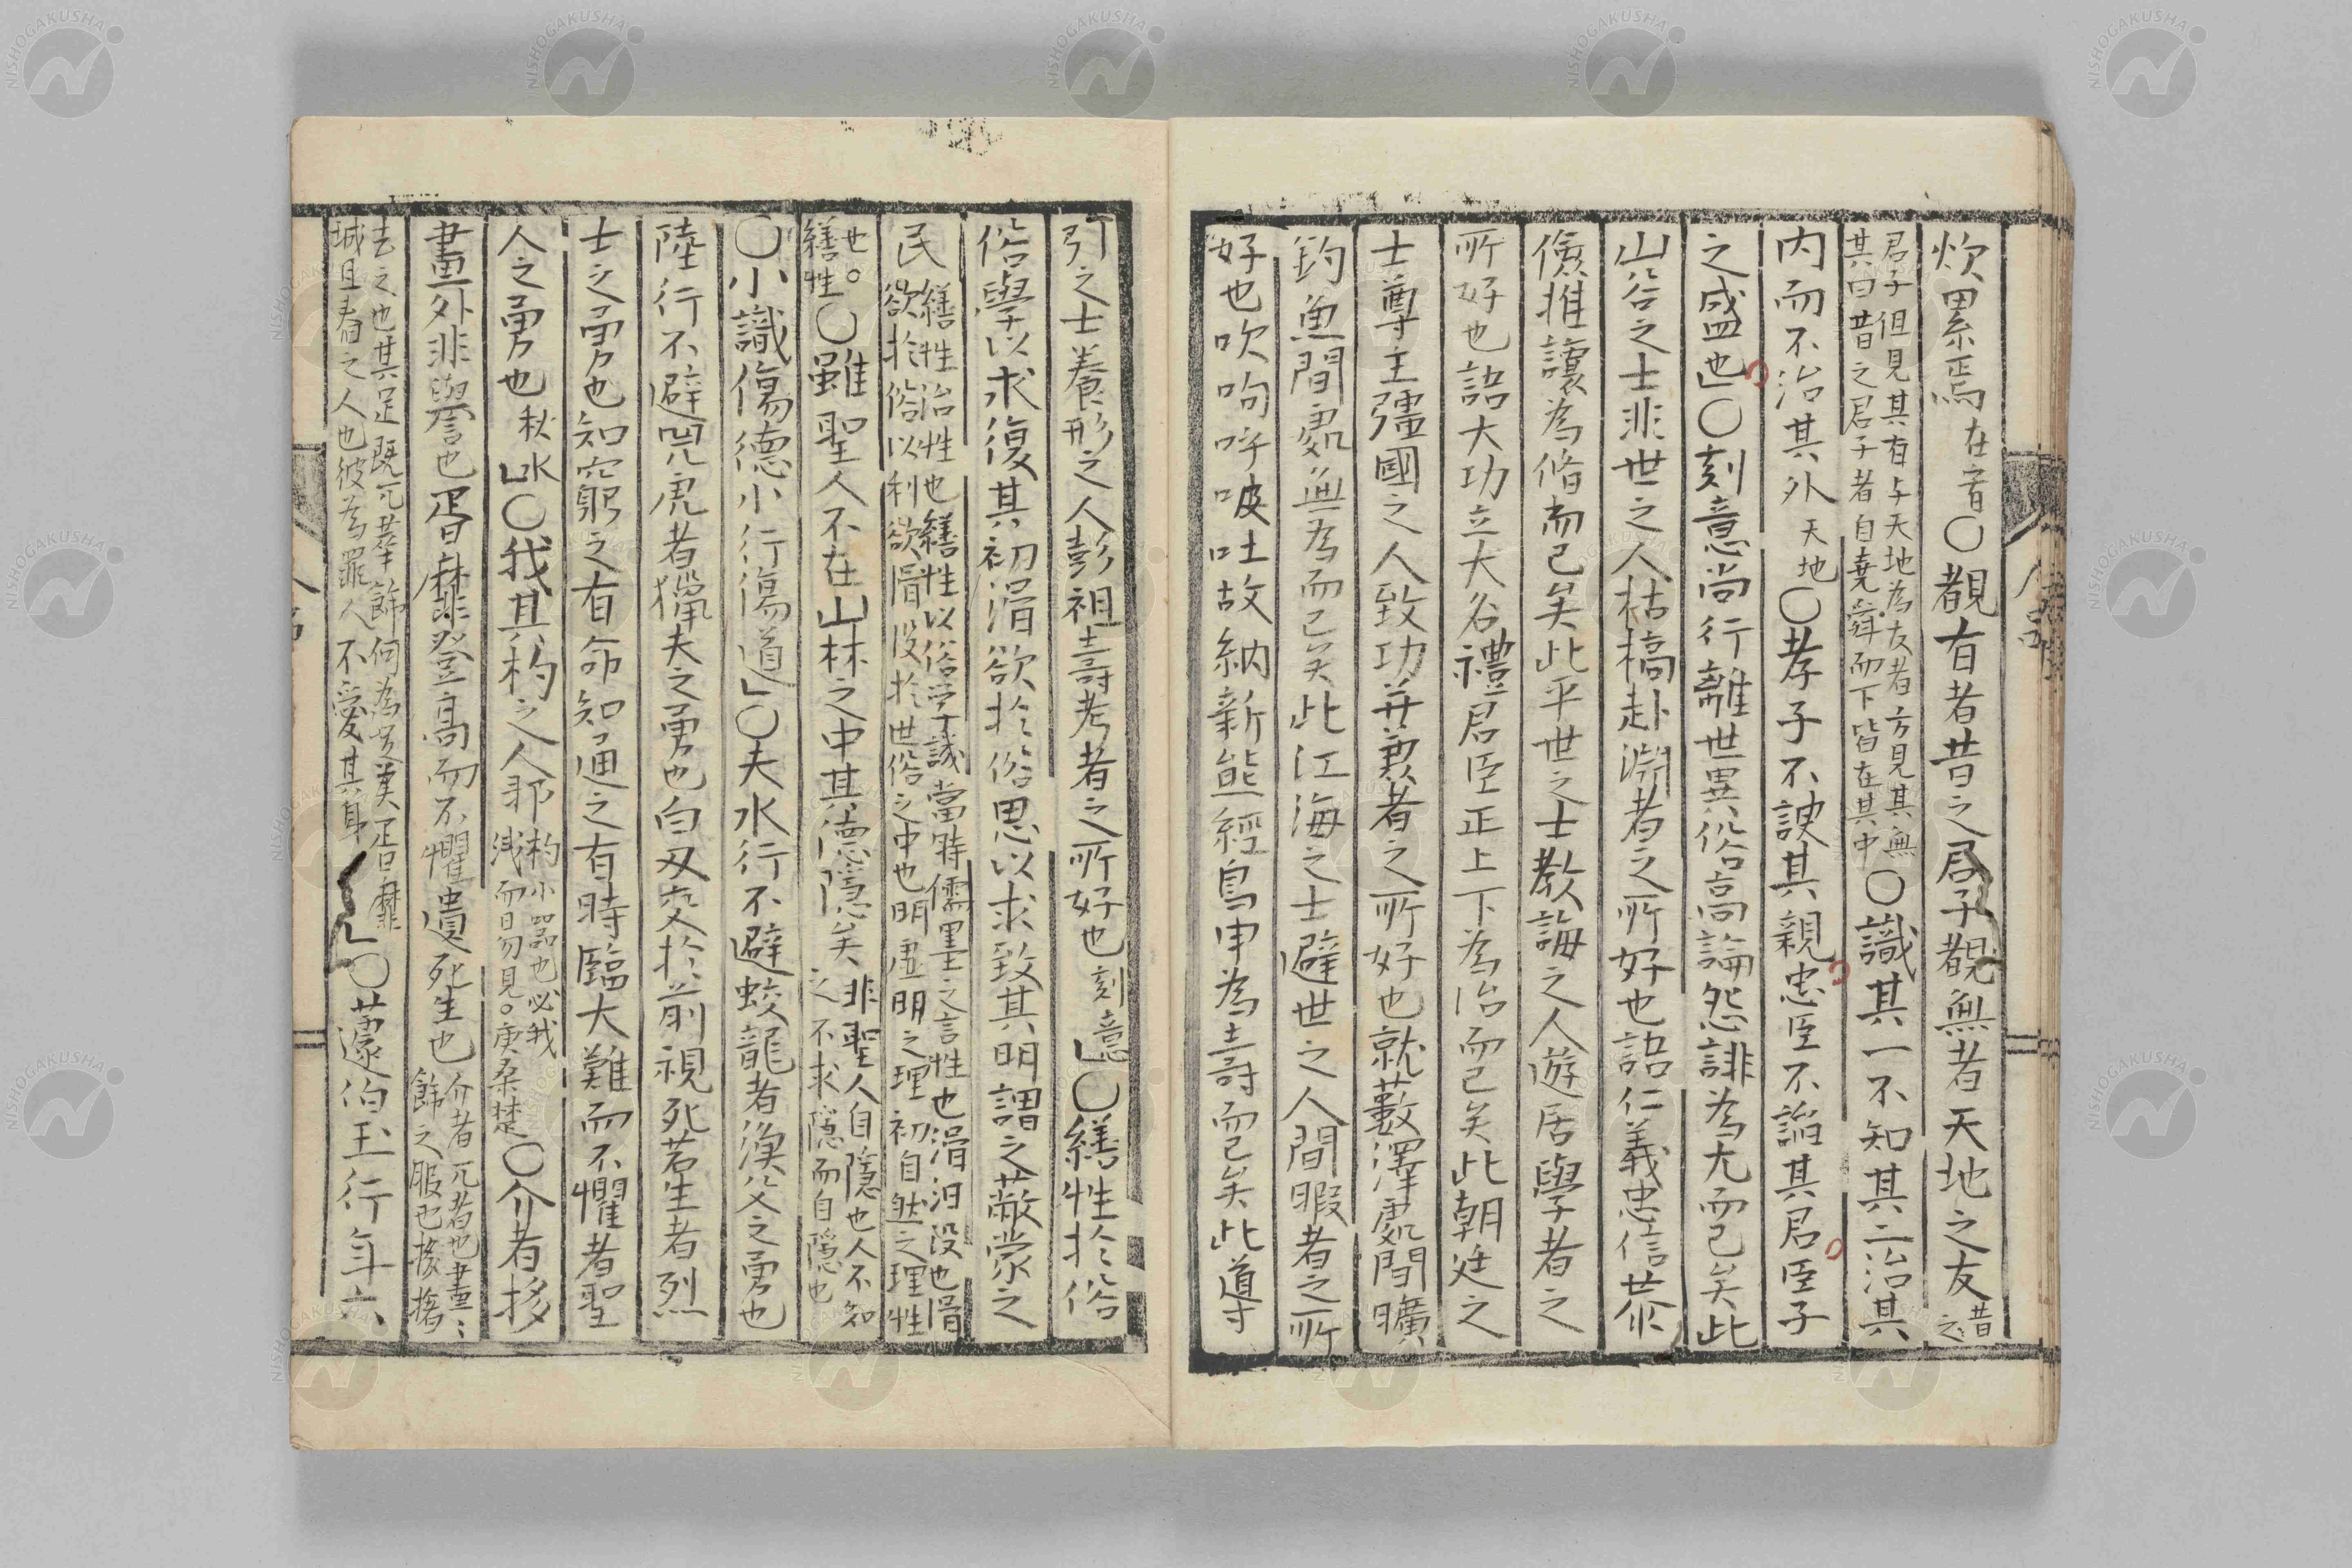 炊累焉在宥〇覩有者昔之君子覩無者天地之友昔之
君子但見其有与天地為友者方見其無
其曰昔之君子者自堯舜而下皆在其中〇識其一不知其二治其
内而不治其外天地〇孝子不諛其親忠臣不諂其君臣子
之盛也〇刻意尚行離世異俗高論怨誹為亢而已矣此
山谷之士非世之人枯槁赴淵者之所好也語仁義忠信恭
儉推讓為脩而已矣此平世之士教誨之人遊居學者之
所好也語大功立大名禮君臣正上下為治而已矣此朝廷之
士尊主彊國之人致功并兼者之所好也就藪澤處間曠
釣魚間處無為而已矣此江海之士避世之人間暇者之所
好也吹呴呼吸吐故納新熊經鳥申為壽而已矣此導
引之士養形之人彭祖壽考者之所好也刻意〇繕性於俗
俗學以求復其初滑欲於俗思以求致其明謂之蔽蒙之
民繕性治性也繕性以俗学誠當時儒墨之言性也滑汨没也滑
欲於俗以利欲滑没於世俗之中也明虚明之理初自然之理性
也。
繕性〇雖聖人不在山林之中其德隱矣非聖人自隱也人不知
之不求隱而自隱也
〇小識傷德小行傷道〇夫水行不避蛟龍者漁父之勇也
陸行不避兕虎者獵夫之勇也白刃交於前視死若生者烈
士之勇也知窮之有命知通之有時臨大難而不懼者聖
人之勇也秋水〇我其杓之人耶杓小器也必我
浅而易見。庚桑楚〇介者拸
畫外非譽也胥靡登高而不懼遺死生也介者兀者也畫〻
飾之服也拸撦
去之也其足既兀華飾何為哉漢胥靡
城旦舂之人也彼為罪人不愛其身〇蘧伯玉行年六
NISHOGAKUSHA